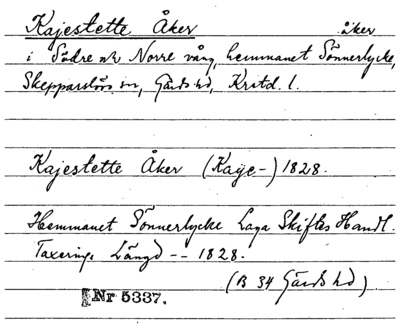 Kajestette Åker åker
i Södre och Norre vång, hemmanet Tönnerlycke,
Skepparslövs sn, Gärds hd, Krstd. l.
Kajestette Åker (Kaije-) 1828.
Hemmanet Tönnerlycke Laga Skiftes Handl.
Taxerings Längd -- 1828.
(B 34 Gärds hd)
Nr 5337.